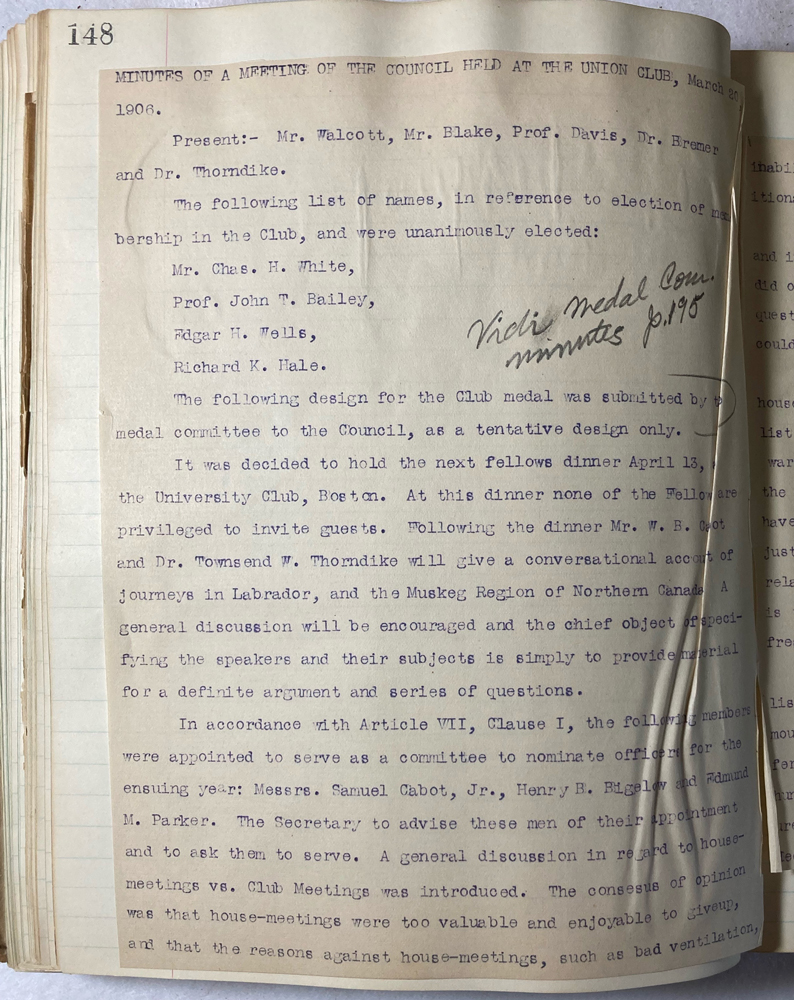 148
MINUTES OF A MEETING OF THE COUNCIL HELD AT THE UNION CLUB, March
1906.
Present:- Mr. Walcott, Mr. Blake, Prof. Davis, Dr. Bremer
and Dr. Thorndike.
The following list of names, in reference to election of mem
bership in the Club, and were unanimously elected:
Mr. Chas. H. White,
Prof. John T. Bailey,
Edgar H. Wells,
Richard K. Hale.
Vidi medal Com.
minutes p.195
The following design for the Club medal was submitted by
medal committee to the Council, as a tentative design only.
It was decided to hold the next fellows dinner April 13,
the University Club, Boston. At this dinner none of the Fellow are
privileged to invite guests. Following the dinner Mr. W. B. Cabot
and Dr. Townsend W. Thorndike will give a conversational account of
journeys in Labrador, and the Muskeg Region of Northern Canada A
general discussion will be encouraged and the chief object of speci-
fying the speakers and their subjects is simply to provide material
for a definite argument and series of questions.
In accordance with Article VII, Clause I, the following members
were appointed to serve as a committee to nominate officers for the
ensuing year: Messrs. Samuel Cabot, Jr., Henry B. Bigelow and Edmund
M. Parker. The Secretary to advise these men of their appointment
and to ask them to serve. A general discussion in regard to house-
meetings vs. Club Meetings was introduced. The consesus of opinion
was that house-meetings were too valuable and enjoyable to giveup,
and that the reasons against house-meetings, such as bad ventilation,